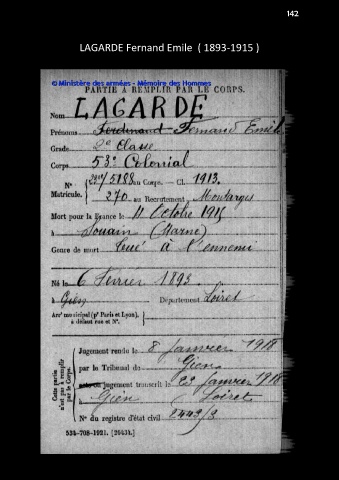 142
LAGARDE Fernand Emile ( 1893-1915 )
© Ministère des armées - Mémoire des Hommes
PARTIE À REMPLIR PAR LE CORPS.
Nom LAGARDE
Prénoms Ferdinand Fernand Emile
Grade 2e Classe
Corps 53e Colonial
N° 5188 au Corps. — Cl. 1913.
Matricule. 270 au Recrutement Montargis
Mort pour la France le 11 Octobre 1915
à Souain (Marne)
Genre de mort Tué à l'ennemi
Né le 6 Février 1893
à Gien Département Loiret
Arr' municipal (p' Paris et Lyon), à défaut rue et N°.
Cette partie n'est pas à remplir par le Corps.
Jugement rendu le 8 Janvier 1918
par le Tribunal de Gien
acte ou jugement transcrit le 22 Janvier 1918
à Gien (Loiret
N° du registre d'état civil
534-708-1921. [26434.]